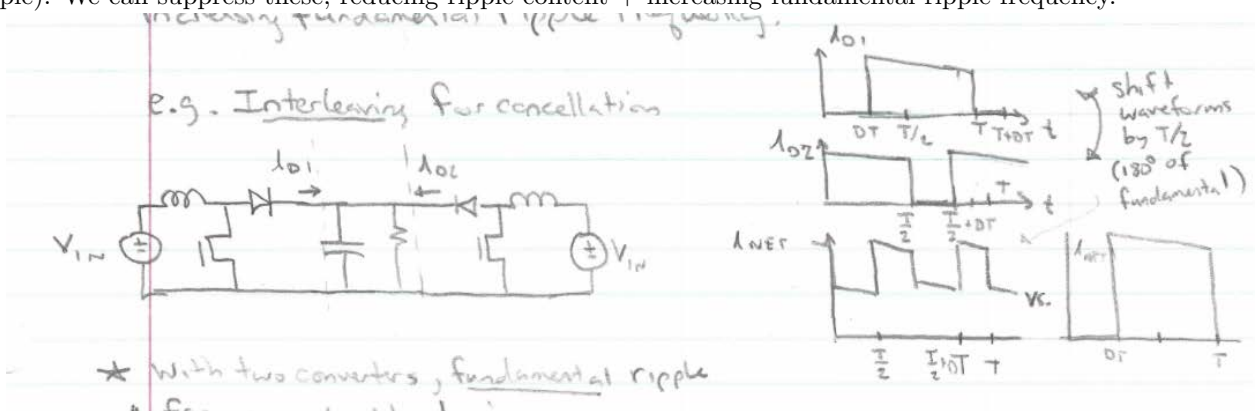 ple). We can suppress these, reducing ripple content + increasing fundamental ripple frequency.
increasing fundamental ripple frequency.
e.g. Interleaving for cancellation
i_D1
i_D2
V_IN
V_IN
i_D1
DT T/2 T T+DT t
i_D2
T/2 T/2+DT T t
shift
waveforms
by T/2
(180° of
fundamental)
i_NET
T/2 T/2+DT T
vs.
i_NET
DT T
* With two converters, fundamental ripple